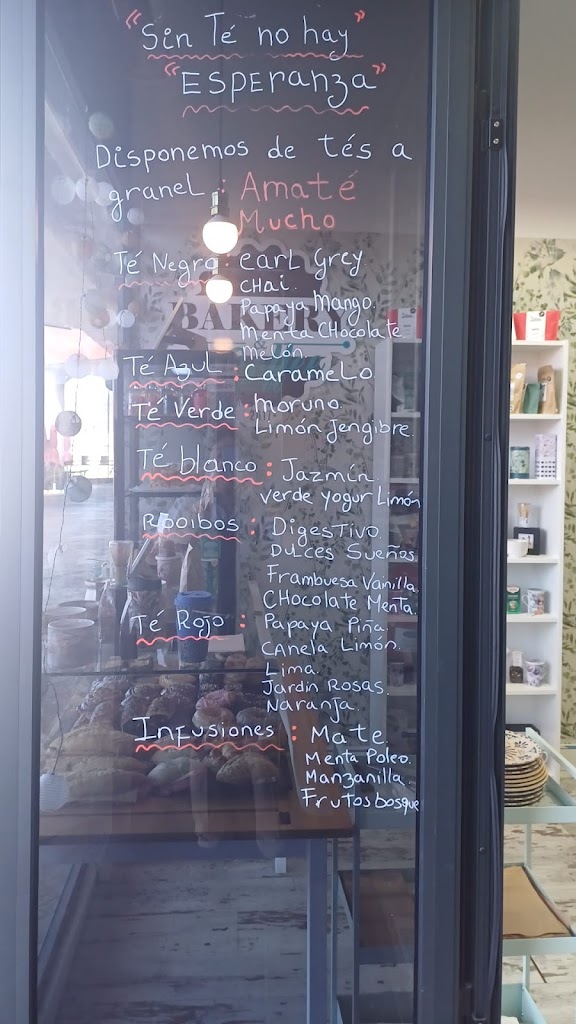 "Sin Té no hay"
"ESPERANZA"
Disponemos de tés a
granel: Amaté
Mucho
Té Negro: Earl Grey
CHai.
Papaya Mango.
Menta CHocolate
Melón.
Té Azul: Caramelo
Té Verde: Moruno.
Limón Jengibre.
Té blanco: Jazmín
verde yogur Limón
Rooibos: Digestivo.
Dulces Sueños
Frambuesa Vanilla.
CHocolate Menta.
Té Rojo: Papaya Piña.
Canela Limón.
Lima.
Jardín Rosas.
Naranja.
Infusiones: Mate.
Menta Poleo.
Manzanilla.
Frutos bosque
BAKERY